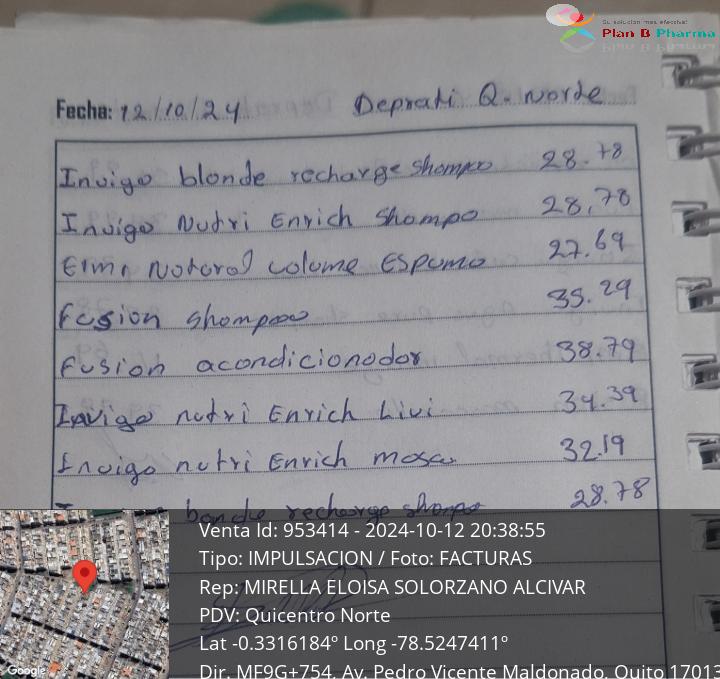 Su solucion mas efectiva!
Plan B Pharma
Fecha: 12/10/24 Deprati Q. Norte
Invigo blonde recharge shompo 28.78
Invigo Nutri Enrich Shompo 28,78
Elmn Notoral Volume Espumo 27.69
Fusion shompoo 35.29
Fusion acondicionodor 38.79
Invigo nutri Enrich Livi 34.39
Invigo nutri Enrich mosca 32.19
bonde recharge shompo 28.78
Venta Id: 953414 - 2024-10-12 20:38:55
Tipo: IMPULSACION / Foto: FACTURAS
Rep: MIRELLA ELOISA SOLORZANO ALCIVAR
PDV: Quicentro Norte
Lat -0.3316184º Long -78.5247411º
Dir. MF9G+754, Av. Pedro Vicente Maldonado, Quito 17013
Google